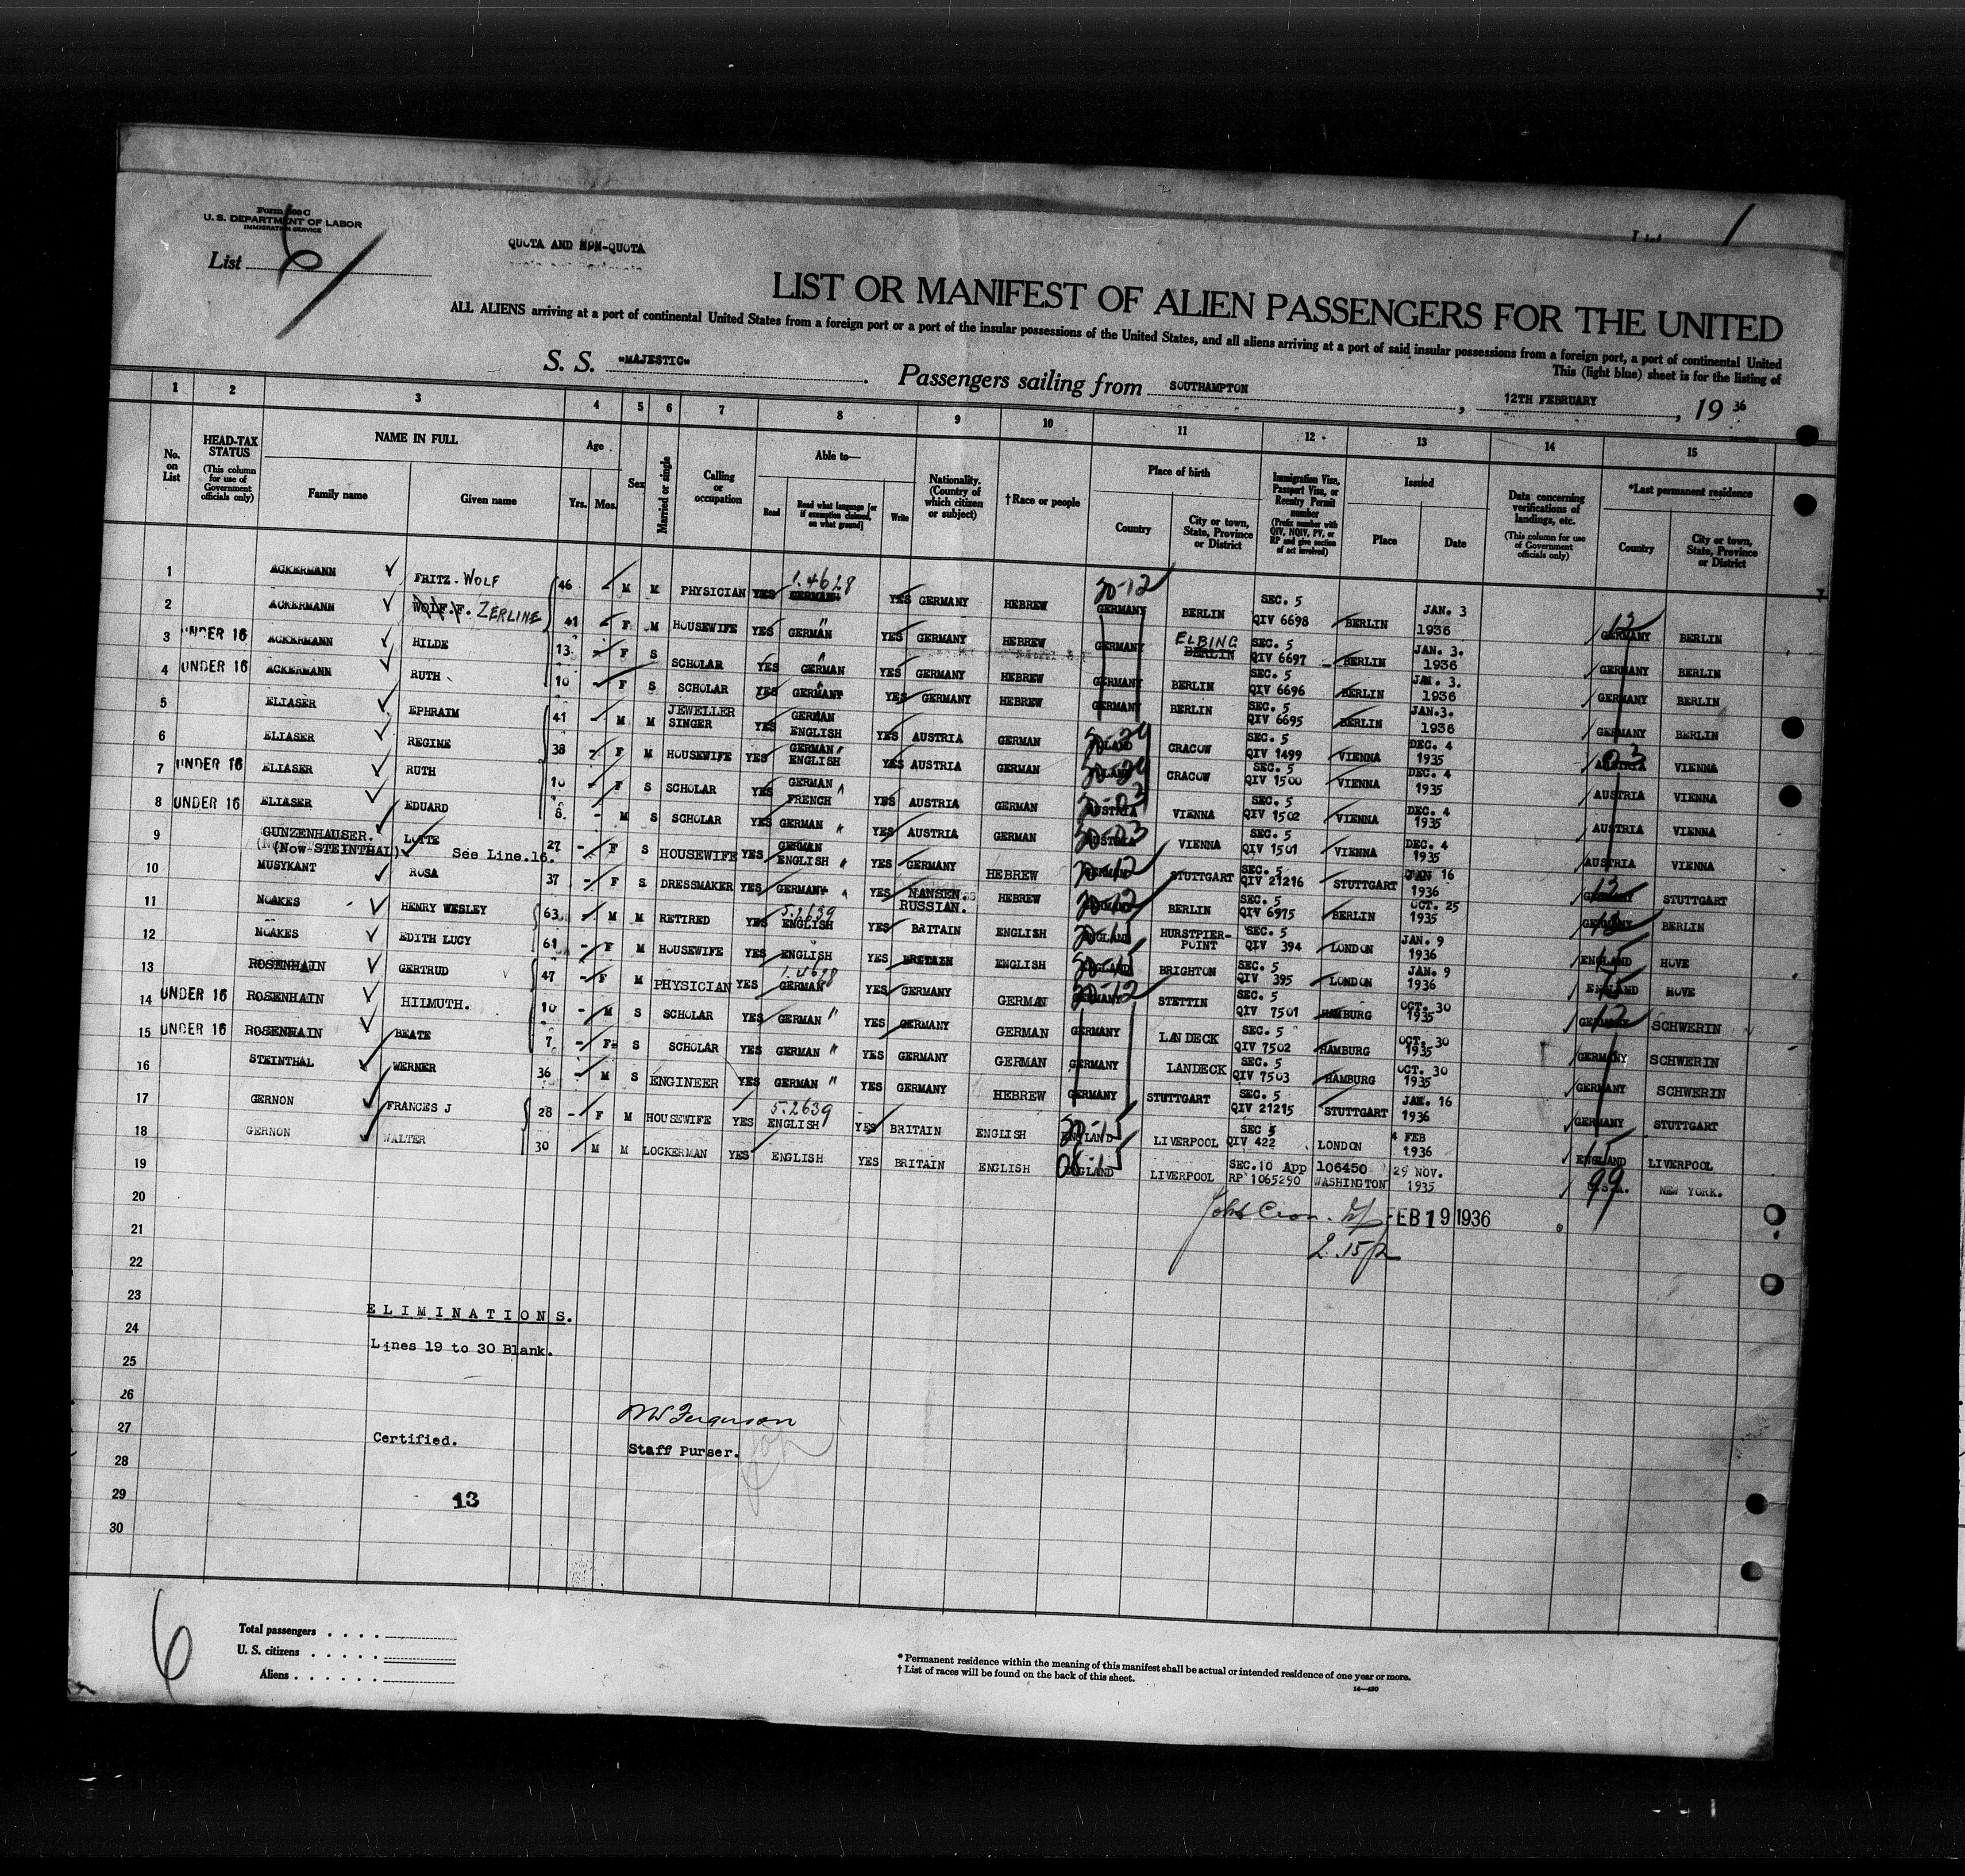 Form 500 C
U. S. DEPARTMENT OF LABOR
IMMIGRATION SERVICE
List 6
1
QUOTA AND NON-QUOTA
LIST OR MANIFEST OF ALIEN PASSENGERS FOR THE UNITED
ALL ALIENS arriving at a port of continental United States from a foreign port or a port of the insular possessions of the United States, and all aliens arriving at a port of said insular possessions from a foreign port, a port of continental United
This (light blue) sheet is for the listing of
S. S. "MAJESTIC" Passengers sailing from SOUTHAMPTON, 12TH FEBRUARY, 19 36
1 2 3 4 5 6 7 8 9 10 11 12 13 14 15
No. on List
HEAD-TAX STATUS (This column for use of Government officials only)
NAME IN FULL
Family name Given name
Age Yrs. Mos.
Sex
Married or single
Calling or occupation
Able to—
Read Read what language [or if exemption claimed, on what ground] Write
Nationality. (Country of which citizen or subject)
†Race or people
Place of birth
Country City or town, State, Province or District
Immigration Visa, Passport Visa, or Reentry Permit number (Prefix number with QIV, NQIV, PV, or RP and give section of act involved)
Issued
Place Date
Data concerning verifications of landings, etc. (This column for use of Government officials only)
*Last permanent residence
Country City or town, State, Province or District
1 ACKERMANN FRITZ-WOLF 46 M M PHYSICIAN YES 1.4628 GERMAN YES GERMANY HEBREW 20-12 GERMANY BERLIN SEC. 5 QIV 6698 BERLIN JAN. 3 1936 12 GERMANY BERLIN
2 ACKERMANN WOLF.F. ZERLINE 41 F M HOUSEWIFE YES GERMAN YES GERMANY HEBREW GERMANY ELBING BERLIN SEC. 5 QIV 6697 BERLIN JAN. 3. 1936 GERMANY BERLIN
3 UNDER 16 ACKERMANN HILDE 13 F S SCHOLAR YES GERMAN YES GERMANY HEBREW GERMANY BERLIN SEC. 5 QIV 6696 BERLIN JAN. 3. 1936 GERMANY BERLIN
4 UNDER 16 ACKERMANN RUTH 10 F S SCHOLAR YES GERMAN YES GERMANY HEBREW GERMANY BERLIN SEC. 5 QIV 6695 BERLIN JAN.3. 1936 GERMANY BERLIN
5 ELIASER EPHRAIM 41 M M JEWELLER SINGER YES GERMAN ENGLISH YES AUSTRIA GERMAN POLAND CRACOW SEC. 5 QIV 1499 VIENNA DEC. 4 1935 03 AUSTRIA VIENNA
6 ELIASER REGINE 38 F M HOUSEWIFE YES GERMAN ENGLISH YES AUSTRIA GERMAN POLAND CRACOW SEC. 5 QIV 1500 VIENNA DEC. 4 1935 AUSTRIA VIENNA
7 UNDER 16 ELIASER RUTH 10 F S SCHOLAR YES GERMAN FRENCH YES AUSTRIA GERMAN 20-03 AUSTRIA VIENNA SEC. 5 QIV 1502 VIENNA DEC. 4 1935 AUSTRIA VIENNA
8 UNDER 16 ELIASER EDUARD 8. M S SCHOLAR YES GERMAN YES AUSTRIA GERMAN 20-03 AUSTRIA VIENNA SEC. 5 QIV 1501 VIENNA DEC. 4 1935 AUSTRIA VIENNA
9 GUNZENHAUSER. (Now STEINTHAL) LOTTE See Line.16. 27 F S HOUSEWIFE YES GERMAN ENGLISH YES GERMANY HEBREW 20-12 GERMANY STUTTGART SEC. 5 QIV 21216 STUTTGART JAN 16 1936 12 GERMANY STUTTGART
10 MUSYKANT ROSA 37 F S DRESSMAKER YES GERMAN YES NANSEN. RUSSIAN. HEBREW 20-12 GERMANY BERLIN SEC. 5 QIV 6975 BERLIN OCT. 25 1935 12 GERMANY BERLIN
11 NOAKES HENRY WESLEY 63 M M RETIRED YES 5.2639 ENGLISH YES BRITAIN ENGLISH 20-15 ENGLAND HURSTPIER-POINT SEC. 5 QIV 394 LONDON JAN. 9 1936 15 ENGLAND HOVE
12 NOAKES EDITH LUCY 61 F M HOUSEWIFE YES ENGLISH YES BRITAIN ENGLISH 20-15 ENGLAND BRIGHTON SEC. 5 QIV 395 LONDON JAN. 9 1936 15 ENGLAND HOVE
13 ROSENHAIN GERTRUD 47 F M PHYSICIAN YES 1.4628 GERMAN YES GERMANY GERMAN 20-12 GERMANY STETTIN SEC. 5 QIV 7501 HAMBURG OCT. 30 1935 12 GERMANY SCHWERIN
14 UNDER 16 ROSENHAIN HILMUTH. 10 M S SCHOLAR YES GERMAN " YES GERMANY GERMAN GERMANY LANDECK SEC. 5 QIV 7502 HAMBURG OCT. 30 1935 GERMANY SCHWERIN
15 UNDER 16 ROSENHAIN BEATE 7 F S SCHOLAR YES GERMAN " YES GERMANY GERMAN GERMANY LANDECK SEC. 5 QIV 7503 HAMBURG OCT. 30 1935 GERMANY SCHWERIN
16 STEINTHAL WERNER 36 M S ENGINEER YES GERMAN " YES GERMANY HEBREW GERMANY STUTTGART SEC. 5 QIV 21215 STUTTGART JAN. 16 1936 GERMANY STUTTGART
17 GERNON FRANCES J 28 F M HOUSEWIFE YES 5.2639 ENGLISH YES BRITAIN ENGLISH 20-15 ENGLAND LIVERPOOL SEC 5 QIV 422 LONDON 4 FEB 1936 15 ENGLAND LIVERPOOL
18 GERNON WALTER 30 M M LOCKERMAN YES ENGLISH YES BRITAIN ENGLISH 06-15 ENGLAND LIVERPOOL SEC.10 App 106450 RP 1065290 WASHINGTON 29 NOV. 1935 99 U.S.A. NEW YORK.
19
20
FEB 19 1936
21
2.15p
22
23
ELIMINATIONS.
24
Lines 19 to 30 Blank.
25
26
27
Certified. Ferguson
Staff Purser.
28
29
13
30
6
Total passengers
U. S. citizens
Aliens
* Permanent residence within the meaning of this manifest shall be actual or intended residence of one year or more.
† List of races will be found on the back of this sheet.